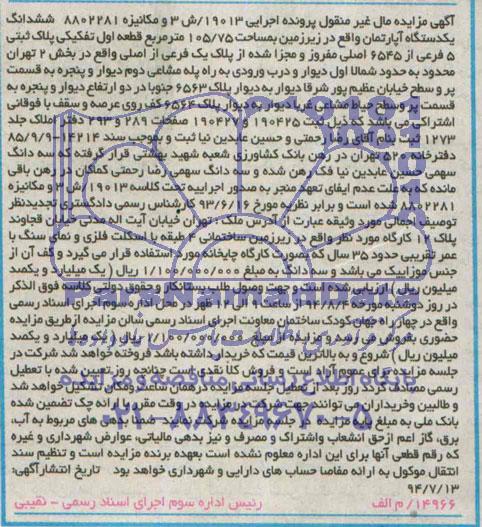 آگهی مزایده مال غیر منقول پرونده اجرایی ۱۹۰۱۳/ش ۳ و مکانیزه ۸۸۰۲۲۸۱ ششدانگ
یکدستگاه آپارتمان واقع در زیرزمین بمساحت ۱۰۵/۷۵ مترمربع قطعه اول تفکیکی پلاک ثبتی
۵ فرعی از ۶۵۴۵ اصلی مفروز و مجزا شده از پلاک یک فرعی از اصلی واقع در بخش ۲ تهران
محدود به حدود شمالا اول دیوار و درب ورودی به راه پله مشاعی دوم دیوار و پنجره به قسمت
پر و سطح خیابان عظیم پور شرقا دیوار به دیوار پلاک ۶۵۶۳ جنوبا در دو ارتفاع دیوار و پنجره به
قسمت پر وسطح حیاط مشاعی غربا دیوار به دیوار پلاک ۶۵۶۴ کف روی عرصه و سقف با فوقانی
اشتراکی می باشد که ذیل ثبت ۱۹۰۴۲۵ و ۱۹۰۴۲۷ صفحات ۲۸۹ و ۲۹۳ دفتر املاک جلد
۱۲۷۳ ثبت بنام آقای رضا رحمتی و حسین عابدین نیا ثبت و بموجب سند ۱۴۲۱۴-۸۵/۹/۹
دفترخانه ۵۲۰ تهران در رهن بانک کشاورزی شعبه شهید بهشتی قرار گرفته که سه دانگ
سهمی حسین عابدین نیا فک رهن شده و سه دانگ سهمی رضا رحمتی کماکان در رهن باقی
مانده که به علت عدم ایفای تعهد منجر به صدور اجراییه تحت کلاسه ۱۹۰۱۳/ش ۳ و مکانیزه
۸۸۰۲۲۸۱ شده است و برابر نظریه مورخ ۹۳/۶/۱۶ کارشناس رسمی دادگستری تجدیدنظر
توصیف اجمالی مورد وثیقه عبارت از آدرس ملک: تهران خیابان آیت اله مدنی خیابان قجاوند
پلاک ۱۲ کارگاه مورد نظر واقع در زیرزمین ساختمانی ۴ طبقه با اسکلت فلزی و نمای سنگ با
عمر تقریبی حدود ۳۵ سال که بصورت کارگاه چاپخانه مورد استفاده قرار می گیرد و کف آن از
جنس موزاییک می باشد و سه دانگ به مبلغ ۱/۱۰۰/۰۰۰/۰۰۰ ریال (یک میلیارد و یکصد
میلیون ریال) ارزیابی شده است و جهت وصول طلب بستانکار و حقوق دولتی کلاسه فوق الذکر
در روز دوشنبه مورخه ۹۴/۸/۴ از ساعت ۹ الی ۱۲ ظهر در محل اداره سوم اجرای اسناد رسمی
واقع در چهار راه جهان کودک ساختمان معاونت اجرای اسناد رسمی سالن مزایده از طریق مزایده
حضوری بفروش می رسد و مزایده از مبلغ ۱/۱۰۰/۰۰۰/۰۰۰ ریال (یک میلیارد و یکصد
میلیون ریال) شروع و به بالاترین قیمت که خریدار داشته باشد فروخته خواهد شد شرکت در
جلسه مزایده برای عموم آزاد است و فروش کلا نقدی است چنانچه روز تعیین شده با تعطیل
رسمی مصادف گردد روز بعد از تعطیل جلسه مزایده در همان ساعت و مکان تشکیل خواهد شد
و طالبین وخریداران می توانند جهت شرکت در مزایده در وقت مقرر با ارائه چک تضمین شده
بانک ملی به مبلغ پایه مزایده در جلسه مزایده شرکت نمایند ضمنا بدهی های مربوط به آب،
برق، گاز اعم از حق انشعاب واشتراک و مصرف و نیز بدهی مالیاتی، عوارض شهرداری و غیره
که رقم قطعی آنها برای این اداره معلوم نشده است بعهده برنده مزایده است و تنظیم سند
انتقال موکول به ارائه مفاصا حساب های دارایی و شهرداری خواهد بود تاریخ انتشار آگهی:
۹۴/۷/۱۳
۱۴۹۶۶/ م الف رئیس اداره سوم اجرای اسناد رسمی - نقیبی
۰۲۱-۸۸۳۴۹۶۷۰-۵